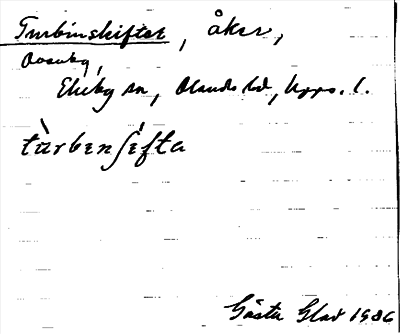 Turbinskiftet, åker,
Ekeby sn, Olands hd, Upps. l.
tùrbenʃefta
Gösta Glad 1986